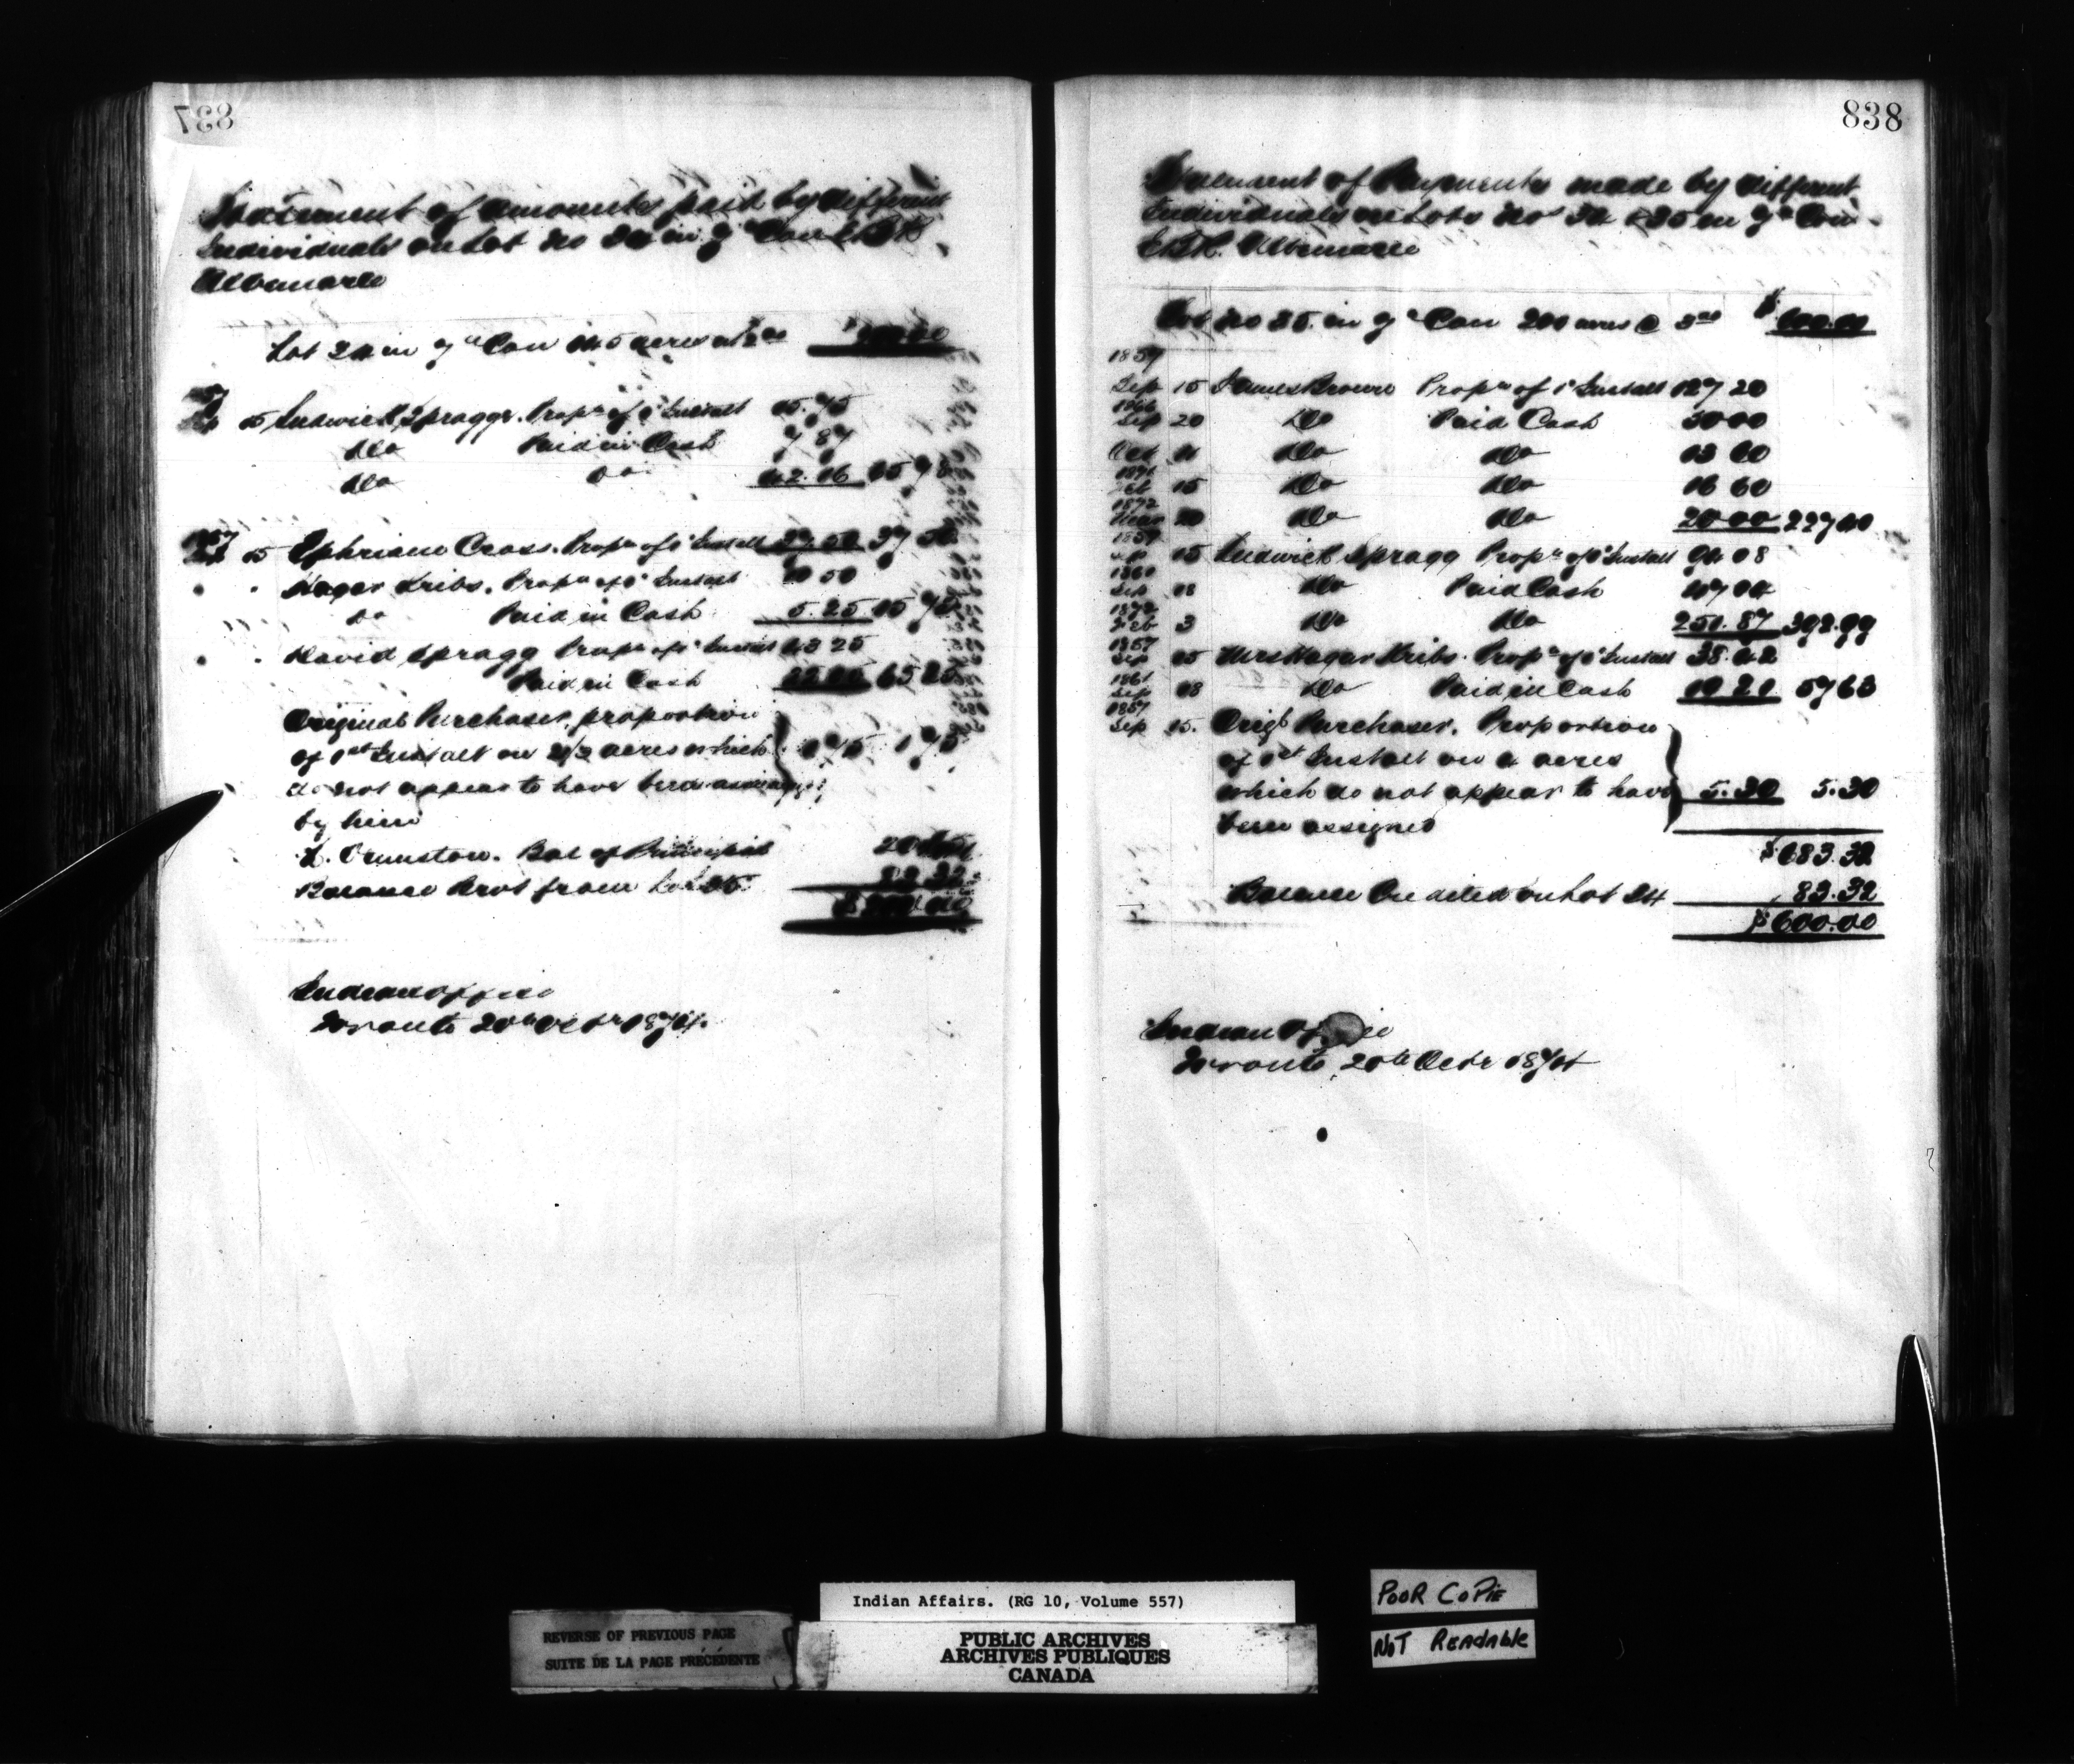 837
Statement of amounts paid by different
Individuals on Lot No 34 in 9th Con E.B.R.
Albemarle
Lot 34 in 9th Con acres at
Ludwick Spragg. Propn of 1st Instalt 15.75
Do Paid in Cash 7 87
Do Do
1857
15 Ephriam Cross. Propn of 1st Instalt 37 50
Hagar Kribs. Propn of 1st Instalt 10 50
Do Paid in Cash 5.25 15 75
David Spragg Propn of 1st Instalt 43 25
Paid in Cash 65 25
Original Purchaser, proportion
of 1st Instalt on acres which 1 75 1 75
do not appear to have been assigned
by him
Ormston. Bal of Principal
Balance Brot from Lot 35. 83 32
Indian Office
Toronto 20th Octr 1874.
838
Statement of Payments made by different
Individuals on Lots Nos 34 & 35 in 9th Con
E.B.R. Albemarle
Lot No 35 in 9th Con 200 acres @ 3 00 $ 600.00
1857
Sep 15 James Brown Propn of 1st Instalt 127 20
Sep 20 Do Paid Cash 50 00
Do Do 13 60
1871
15 Do Do 16 60
1872
20 Do Do 20 00 227 40
1857
Sep 15 Ludwick Spragg Propn of 1st Instalt 94 08
Sep 18 Do Paid Cash 47 04
Feb 3 Do Do 251.87 392.99
1857
Sep 15 Mrs Hagar Kribs. Propn of 1st Instalt 38.42
1861
Sep 18 Do Paid in Cash 19 21 57 63
1857
Sep 15. Origl Purchaser. Proportion
of 1st Instalt on acres
which do not appear to have 5.30 5.30
been assigned
$683.32
Balance Credited on Lot 34 83.32
$600.00
Indian Office
Toronto, 20th Octr 1874
Indian Affairs. (RG 10, Volume 557)
REVERSE OF PREVIOUS PAGE
SUITE DE LA PAGE PRÉCÉDENTE
PUBLIC ARCHIVES
ARCHIVES PUBLIQUES
CANADA
POOR COPIE
NOT READABLE